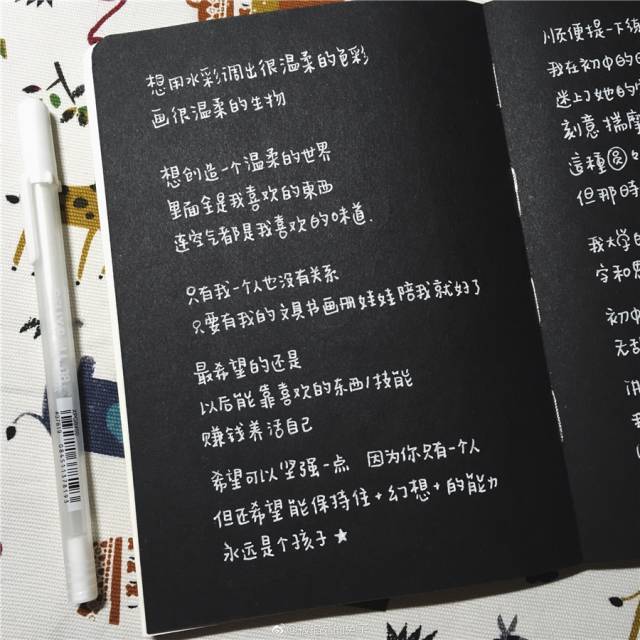 想用水彩调出很温柔的色彩
画很温柔的生物
想创造一个温柔的世界
里面全是我喜欢的東西
连空气都是我喜欢的味道.
只有我一个人也没有关系
只要有我的文具书画册娃娃陪我就好了
最希望的还是
以后能靠喜欢的东西/技能
赚钱养活自己
希望可以坚强一点 因为你只有一个人
但还希望能保持住+幻想+的能力
永远是个孩子★
顺便提一下练
我在初中的
迷上了她的
刻意揣摩
這種圆
但那時
我大学的
字和
初中
无